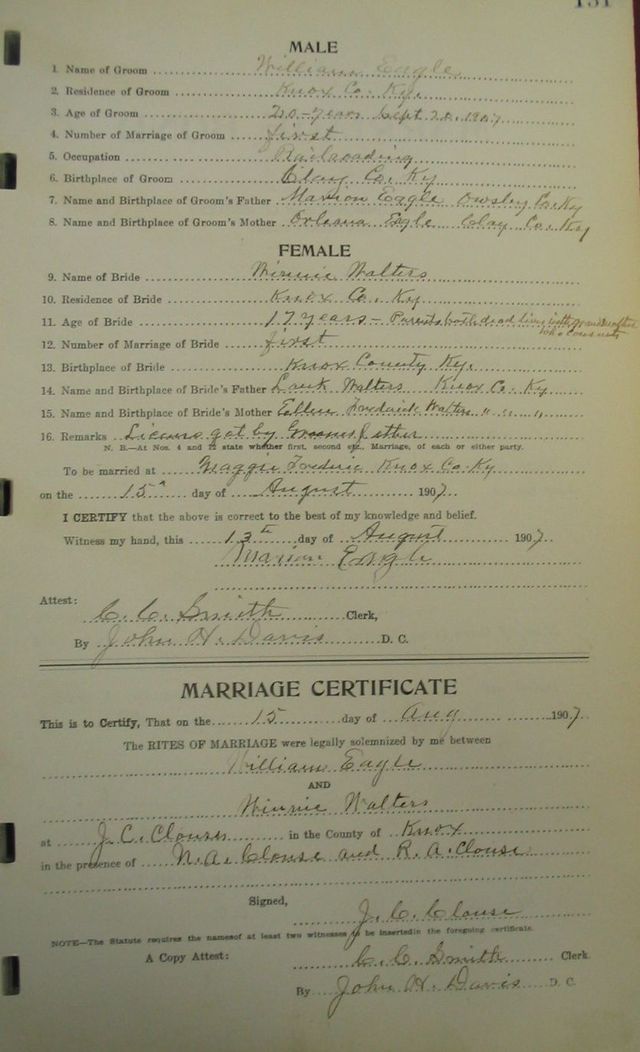 131
MALE
1. Name of Groom William Eagle
2. Residence of Groom Knox Co. Ky.
3. Age of Groom 20 - years Sept 20. 1907
4. Number of Marriage of Groom first
5. Occupation Railroading
6. Birthplace of Groom Clay Co. Ky
7. Name and Birthplace of Groom's Father Marion Eagle Owsley Co. Ky
8. Name and Birthplace of Groom's Mother Eagle Clay Co. Ky
FEMALE
9. Name of Bride Winnie Walters
10. Residence of Bride Knox Co. Ky
11. Age of Bride 17 years - Parents both dead living with grandmother
who consents
12. Number of Marriage of Bride first
13. Birthplace of Bride Knox County Ky.
14. Name and Birthplace of Bride's Father Walters Knox Co. Ky
15. Name and Birthplace of Bride's Mother Ellen Frederick Walters " " "
16. Remarks License got by Grooms father
N. B.—At Nos. 4 and 12 state whether first, second etc., Marriage, of each or either party.
To be married at Maggie Frederic Knox Co. Ky
on the 15" day of August 1907
I CERTIFY that the above is correct to the best of my knowledge and belief.
Witness my hand, this 13th day of August 1907
Marion Eagle
Attest:
C. C. Smith Clerk,
By John H. Davis D. C.
MARRIAGE CERTIFICATE
This is to Certify, That on the 15 day of Aug 1907
The RITES OF MARRIAGE were legally solemnized by me between
William Eagle
AND
Winnie Walters
at J. C. Clouses in the County of Knox
in the presence of N. A. Clouse and R. A. Clouse
Signed,
J. C. Clouse
NOTE—The Statute requires the namesof at least two witnesses to be insertedin the foregoing certificate.
A Copy Attest: C. C. Smith Clerk
By John H. Davis D. C.